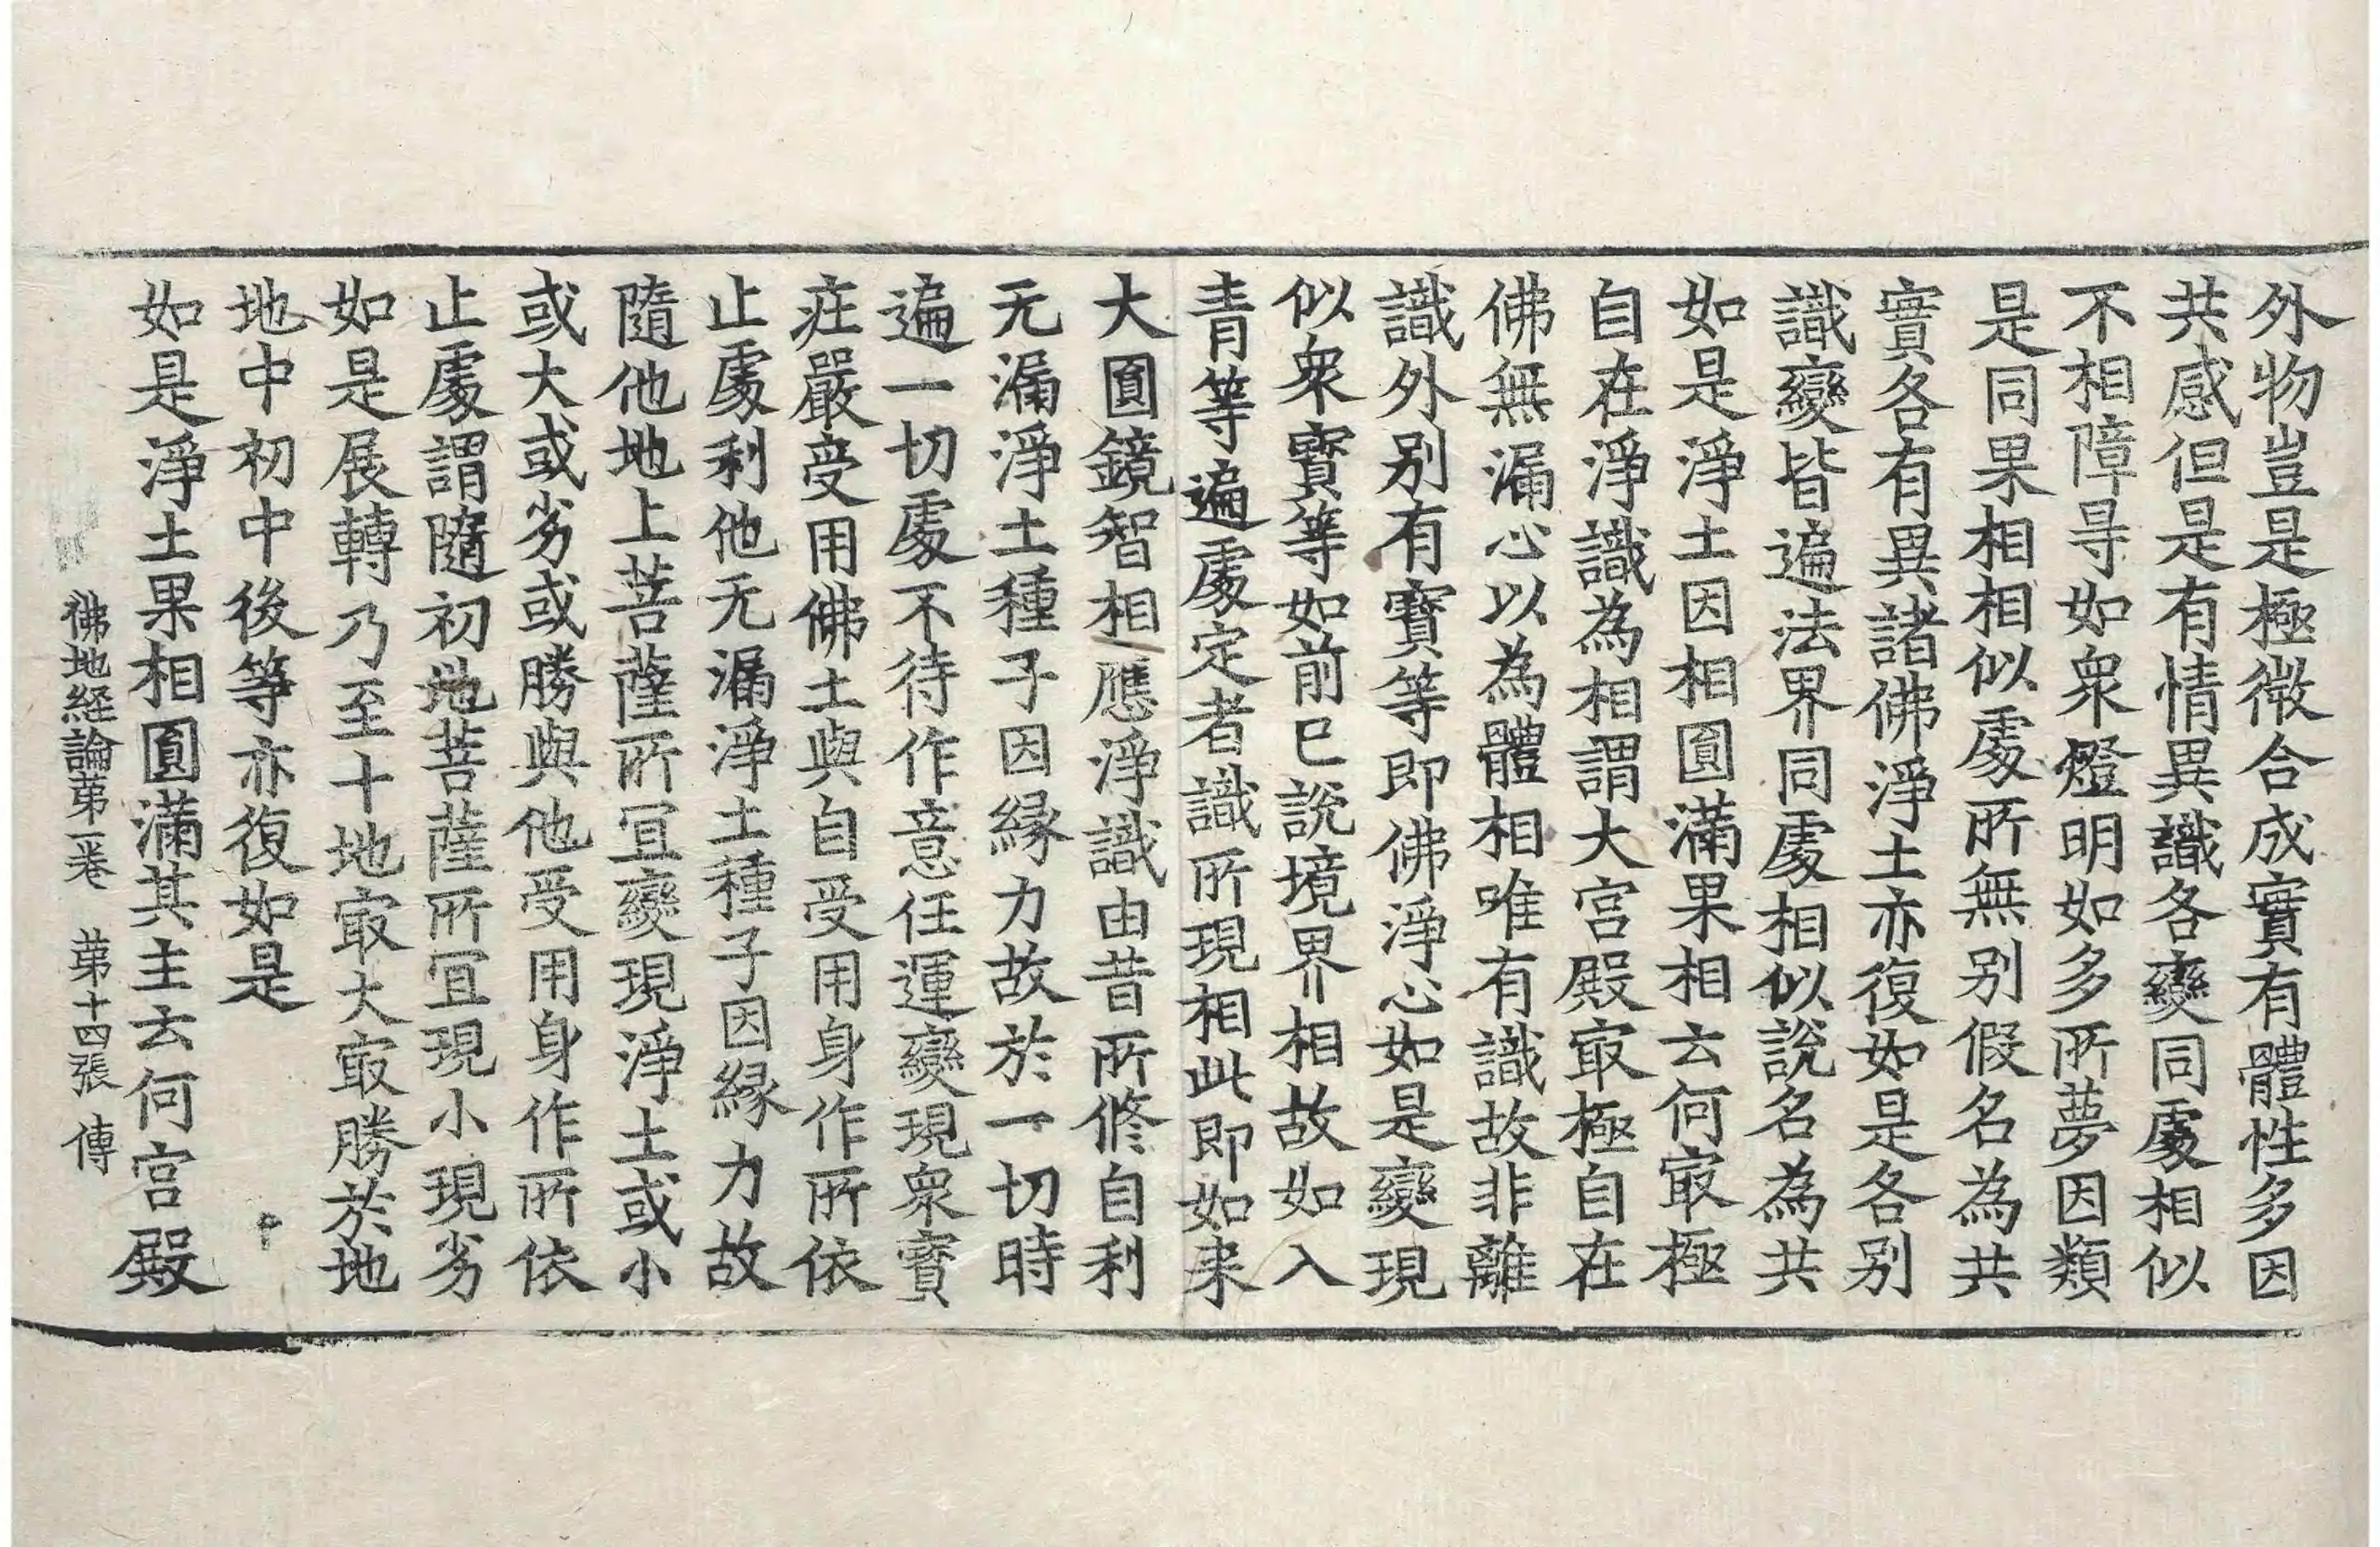 外物豈是極微合成實有體性多因
共感但是有情異識各變同處相似
不相障㝵如衆燈明如多所夢因類
是同果相相似處所無别假名為共
實各有異諸佛淨土亦復如是各别
識變皆遍法界同處相似說名為共
如是淨土因相圎滿果相云何㝡極
自在淨識為相謂大宫殿㝡極自在
佛無漏心以為體相唯有識故非離
識外别有寶等即佛淨心如是變現
似衆寶等如前已說境界相故如入
青等遍處定者識所現相此即如来
大圎鏡智相應淨識由昔所修自利
无漏淨土種子因縁力故於一切時
遍一切處不待作意任運變現衆寳
莊嚴受用佛土與自受用身作所依
止處利他无漏淨土種子因縁力故
隨他地上菩薩所冝變現淨土或小
或大或劣或勝與他受用身作所依
止處謂隨初地菩薩所冝現小現劣
如是展轉乃至十地㝡大㝡勝於地
地中初中後等亦復如是
如是淨土果相圎滿其主云何宫殿
佛地経論苐一卷　苐十四張　傳